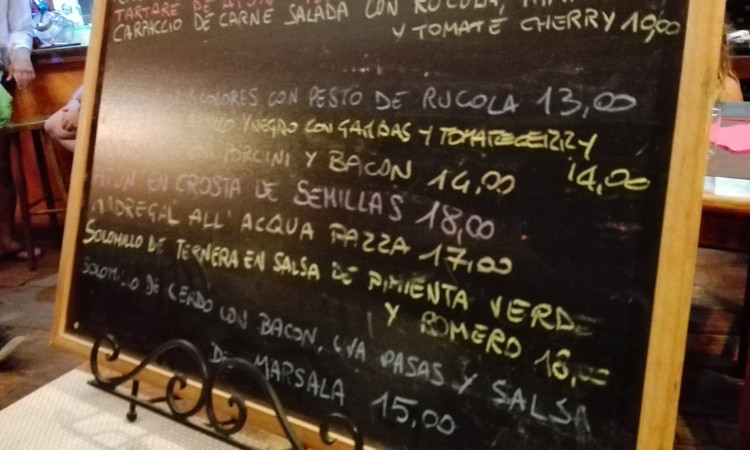 TARTARE DE
CARPACCIO DE CARNE SALADA CON RUCOLA,
Y TOMATE CHERRY 19,00
CON PESTO DE RUCOLA 13,00
Y NEGRO CON GAMBAS Y TOMATE
14,00
PORCINI Y BACON 14,00
ATUN EN CROSTA DE SEMILLAS 18,00
ALL' ACQUA PAZZA 17,00
SOLOMILLO DE TERNERA EN SALSA DE PIMIENTA VERDE
Y ROMERO 18,00
SOLOMILLO DE CERDO CON BACON, UVA PASAS Y SALSA
DE MARSALA 15,00